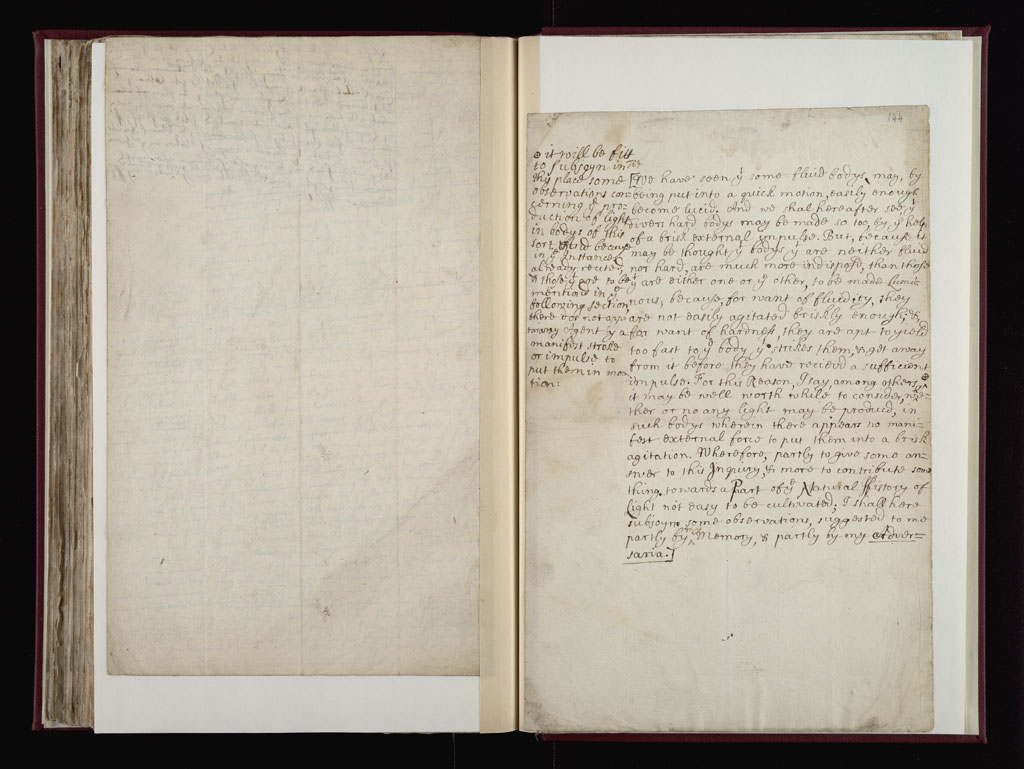 144
⊕ it will be fitt
to subjoyn in
this place some
observations con-
cerning yͤ pro-
duction of light
in bodys of this
sort. And because
in yͤ Instances
already recited,
& those yͭ are to be
mention'd in yͤ
following section,
there dos not appear
any Agent yͭ a
manifest stroke
or impulse to
put them in mo-
tion:
[We have seen yͭ some fluid bodys, may, by
being put into a quick motion, easily enough
become lucid. And we shal hereafter see, yͭ
divers hard bodys may be made so too, by yͤ help
of a brisk external impulse. But, because it
may be thought yͭ bodys yͭ are neither fluid
nor hard, are much more indispos'd, than those
yͭ are either one or yͤ other, to be made Lumi-
nous, because, for want of fluidity, they
are not easily agitated briskly enough; &,
for want of hardness, they are apt to yield
too fast to yͤ body yͭ strikes them, & get away
from it before they have reciev'd a sufficient
impulse. For this Reason, I say, among others, ⊕
it may be well worth while to consider, whe-
ther or no any light may be produc'd, in
such bodys wherein there appears no mani-
fest external force to put them into a brisk
agitation. Wherefore, partly to give some an-
swer to this Inquiry, & more to contribute some
thing towards a Part of yͤ Natural History of
Light not easy to be cultivated; I shall here
subjoyn some observations, suggested to me
partly by my Memory, & partly by my Adver-
saria.]